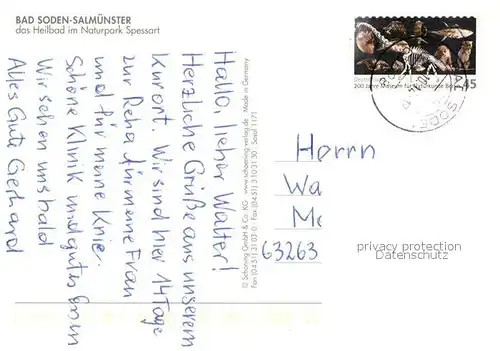 BAD SODEN-SALMÜNSTER
das Heilbad im Naturpark Spessart
Hallo, lieber Walter!
Herzliche Grüße aus unserem
Kurort. Wir sind hier 14 Tage
zur Reha für meine Frau
und für meine Knie.
Schöne Klinik und gutes Essen
Wir sehen uns bald
Alles Gute Gerhard
© Schöning GmbH & Co. KG · www.schoening-verlag.de · Made in Germany
Fax (0451) 31030 · Fax (0451) 3103130 · Sosal 1171
200 Jahre Museum für Naturkunde Berlin
45
Herrn
Wa
63263
privacy protection
Datenschutz